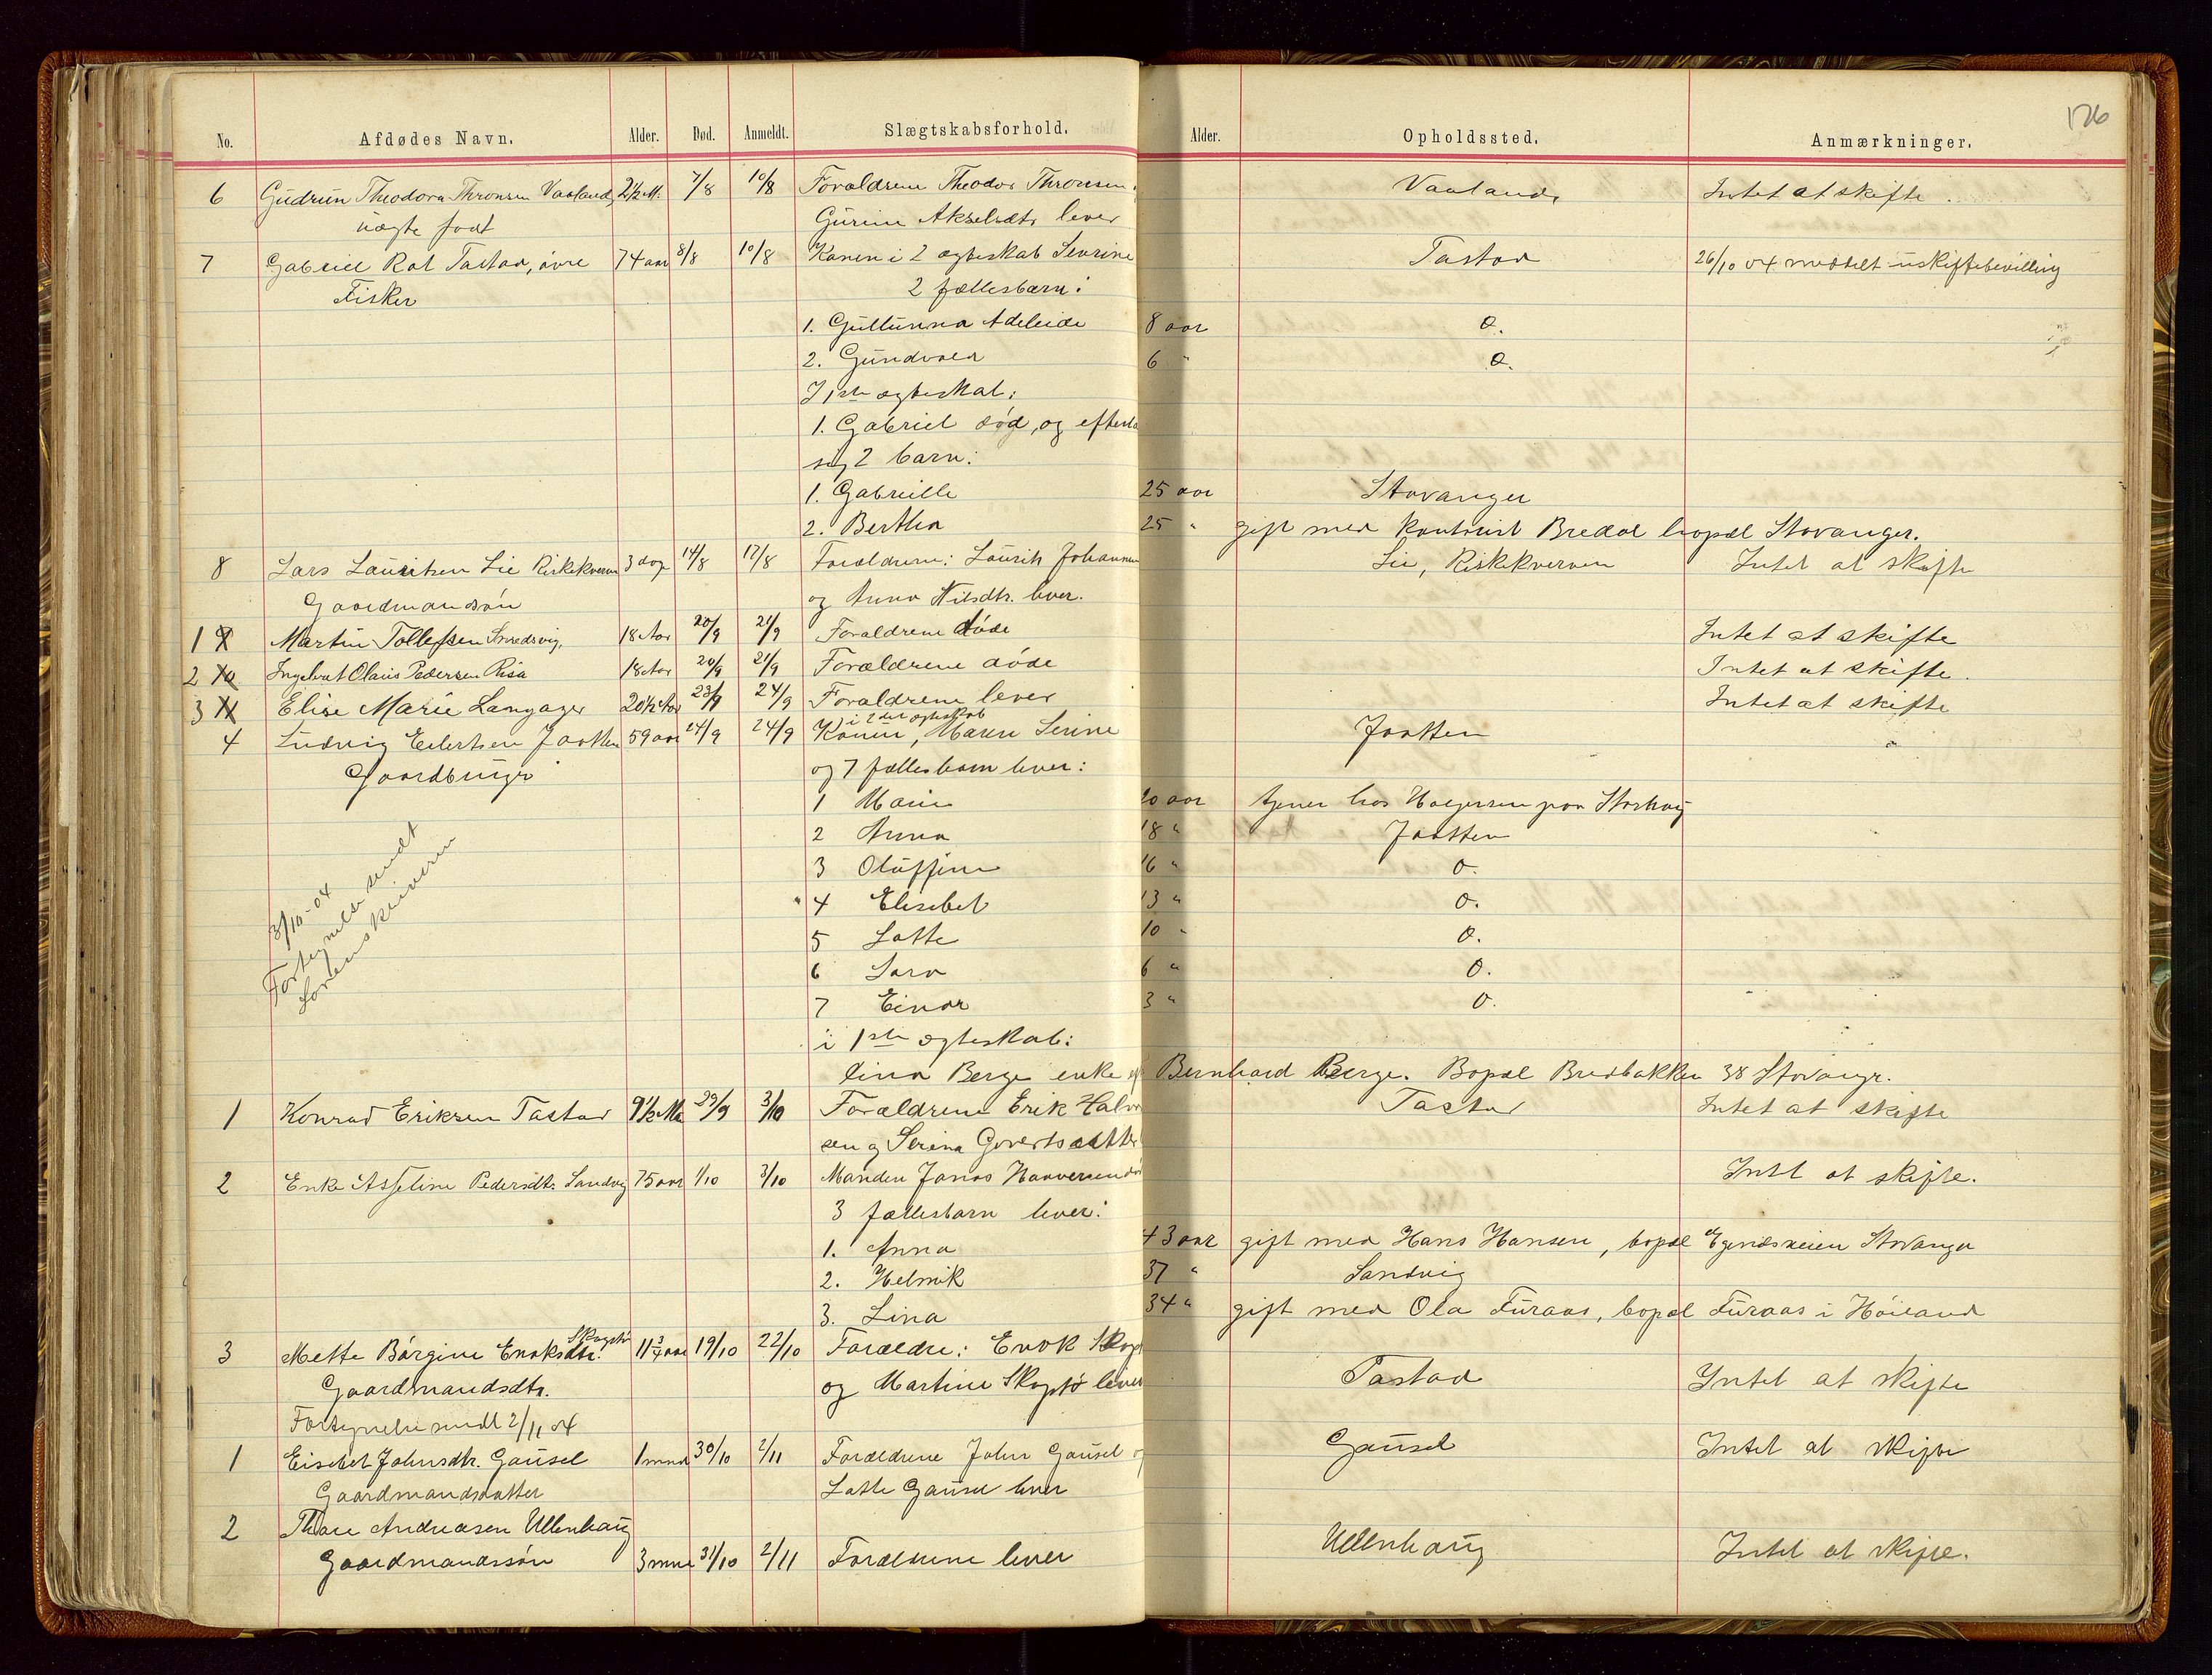 176
No. Afdødes Navn. Alder. Død. Anmeldt. Slægtskabsforhold. Alder. Opholdssted. Anmærkninger.
6 Gudrun Theodora Thronsen Vaaland 2½ M. 7/8 10/8 Forældrene Theodor Thronsen Vaaland Intet at skifte
uægte født Gurine Akselsdtr lever
7 Gabriel Rot Tastad, øvre 74 aar 8/8 10/8 Konen i 2 ægteskab Sevrine Tastad 26/10 04 meddelt uskiftebevilling
Fisker 2 fællesbarn:
1. Gullunna Adeleide 8 aar o.
2. Gundvald 6 " o.
I 1ste ægteskab:
1. Gabriel død, og efterla
sig 2 barn:
1. Gabrielle 25 aar Stavanger
2. Bertha 25 " gift med Bredal bopæl Stavanger.
8 Lars Lauritsen Lie Riskekvern 3 dage 14/8 17/8 Forældrene: Laurits Johannes Lie, Riskekvernen Intet at skifte
Gaardmandsøn og Anna Nilsdtr. lever.
1 9 Martin Tollefsen Smedsvig, 18 Aar 20/9 21/9 Forældrene døde Intet at skifte
2 10 Ingebret Olaus Pedersen Risa 18 Aar 20/9 21/9 Forældrene døde Intet at skifte.
3 11 Elise Marie Langager 20½ Aar 23/9 24/9 Forældrene lever Intet at skifte
i 2det ægteskab
4 Ludvig Eilertsen Jaatten 59 aar 24/9 24/9 Konen, Maren Serine Jaatten
Gaardbruger og 7 fællesbarn lever:
1 Marie 20 aar tjener hos Holgersen paa Storhaug
2 Anna 18 " Jaatten
3 Oluffine 16 " o.
4 Elisebet 13 " o.
5 Lotte 10 " o.
6 Sara 6 " o.
7 Einar 3 " o.
3/10-04
Fortegnelse sendt
Sorenskriveren
i 1ste ægteskab:
Lina Berge enke ef Bernhard Berge. Bopæl Bredbakken 38 Stavanger.
1 Konrad Eriksen Tastad 9½ Md 29/9 3/10 Forældrene Erik Halvor Tastad Intet at skifte
sen og Serina Govertsdatter
2 Enke Asseline Pedersdtr. Sandvig 75 aar 1/10 3/10 Manden Jonas Haaversen død Intet at skifte.
3 fællesbarn lever:
1. Anna 43 aar gift med Hans Hansen, bopæl Egenæsveien Stavanger
2. Helmik 37 " Sandvig
3. Lina 34 " gift med Ola Furaas, bopæl Furaas i Høiland
3 Mette Børgine Enoksdtr. Skogstø 11¾ aar 19/10 22/10 Forældre: Enok Skog Tastad Intet at skifte
Gaardmandsdtr. og Martine Skogstø lever
Fortegnelse sendt 2/11 04
1 Eisebet Johnsdtr. Gausel 1 mnd 30/10 2/11 Forældrene John Gausel og Gausel Intet at skifte
Gaardmandsdatter Lotte Gausel lever
2 Thore Andreasen Ullenhaug
Gaardmandssøn 3 mnd 31/10 2/11 Forældrene lever Ullenhaug Intet at skifte.